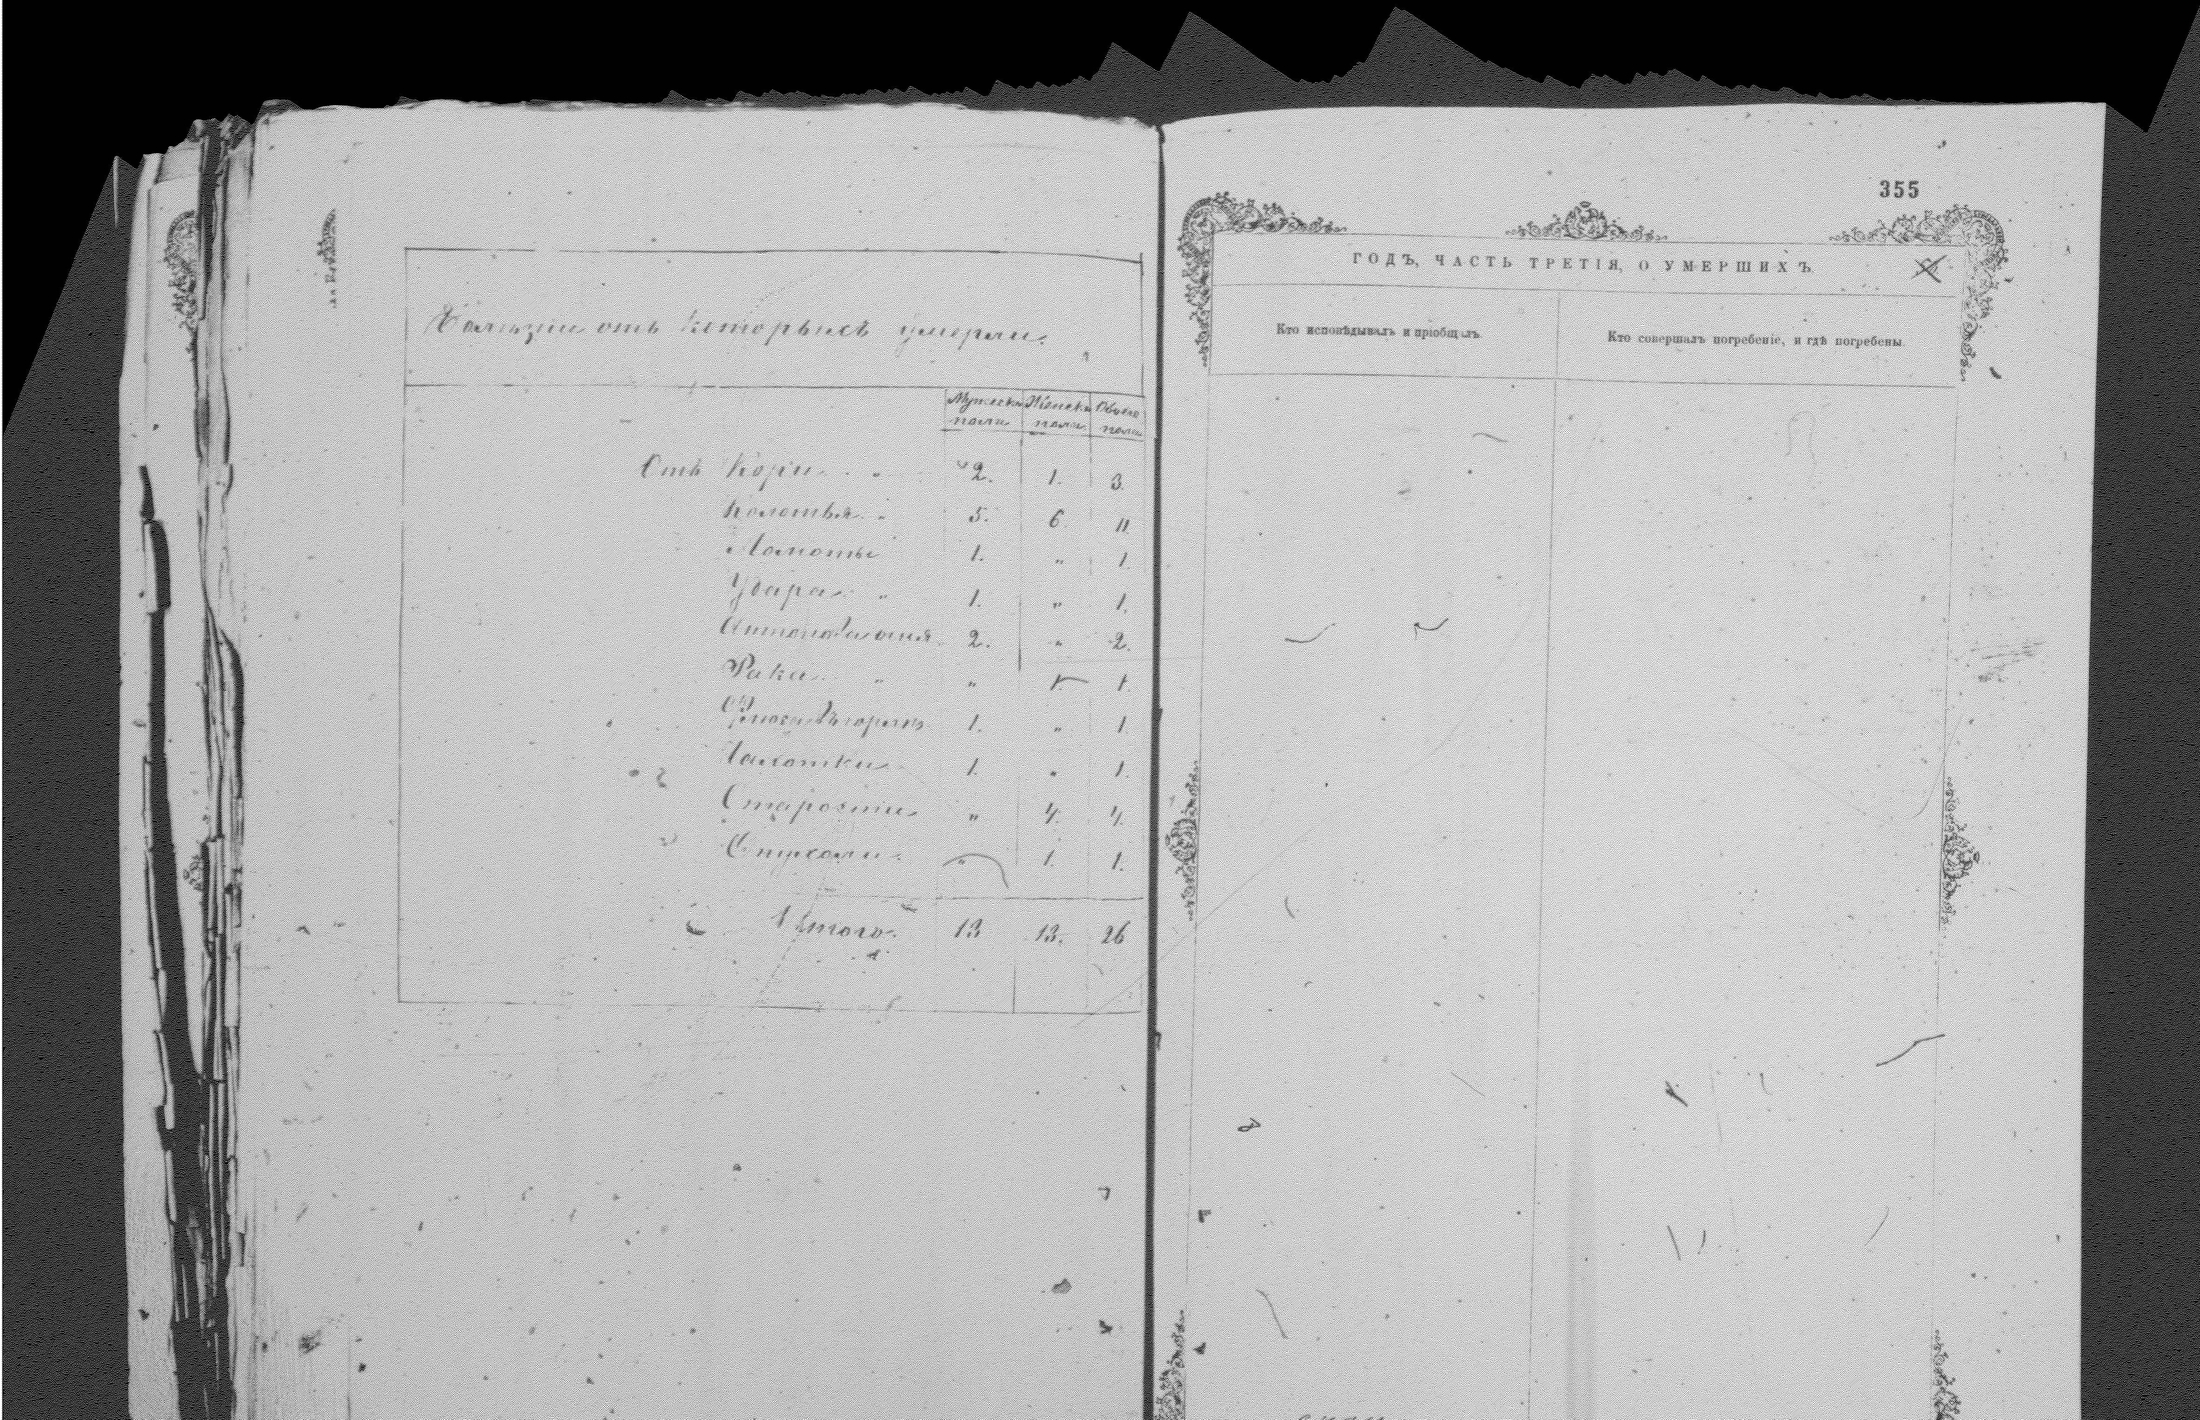 Болѣзни отъ которыхъ умерли.
Мужеска Женска Обоего
пола пола пола
Отъ Кори 2. 1. 3.
Колотья " 5. 6. 11.
Ломоты 1. " 1.
Удара " 1. " 1.
2. " 2.
Рака " " 1. 1.
1. " 1.
Чахотки 1. " 1.
Старости " 4. 4.
Опухоли " 1. 1.
Итого 13 13. 26
355
ГОДЪ, ЧАСТЬ ТРЕТІЯ, О УМЕРШИХЪ
Кто исповѣдывалъ и пріобщалъ.
Кто совершалъ погребеніе, и гдѣ погребены.